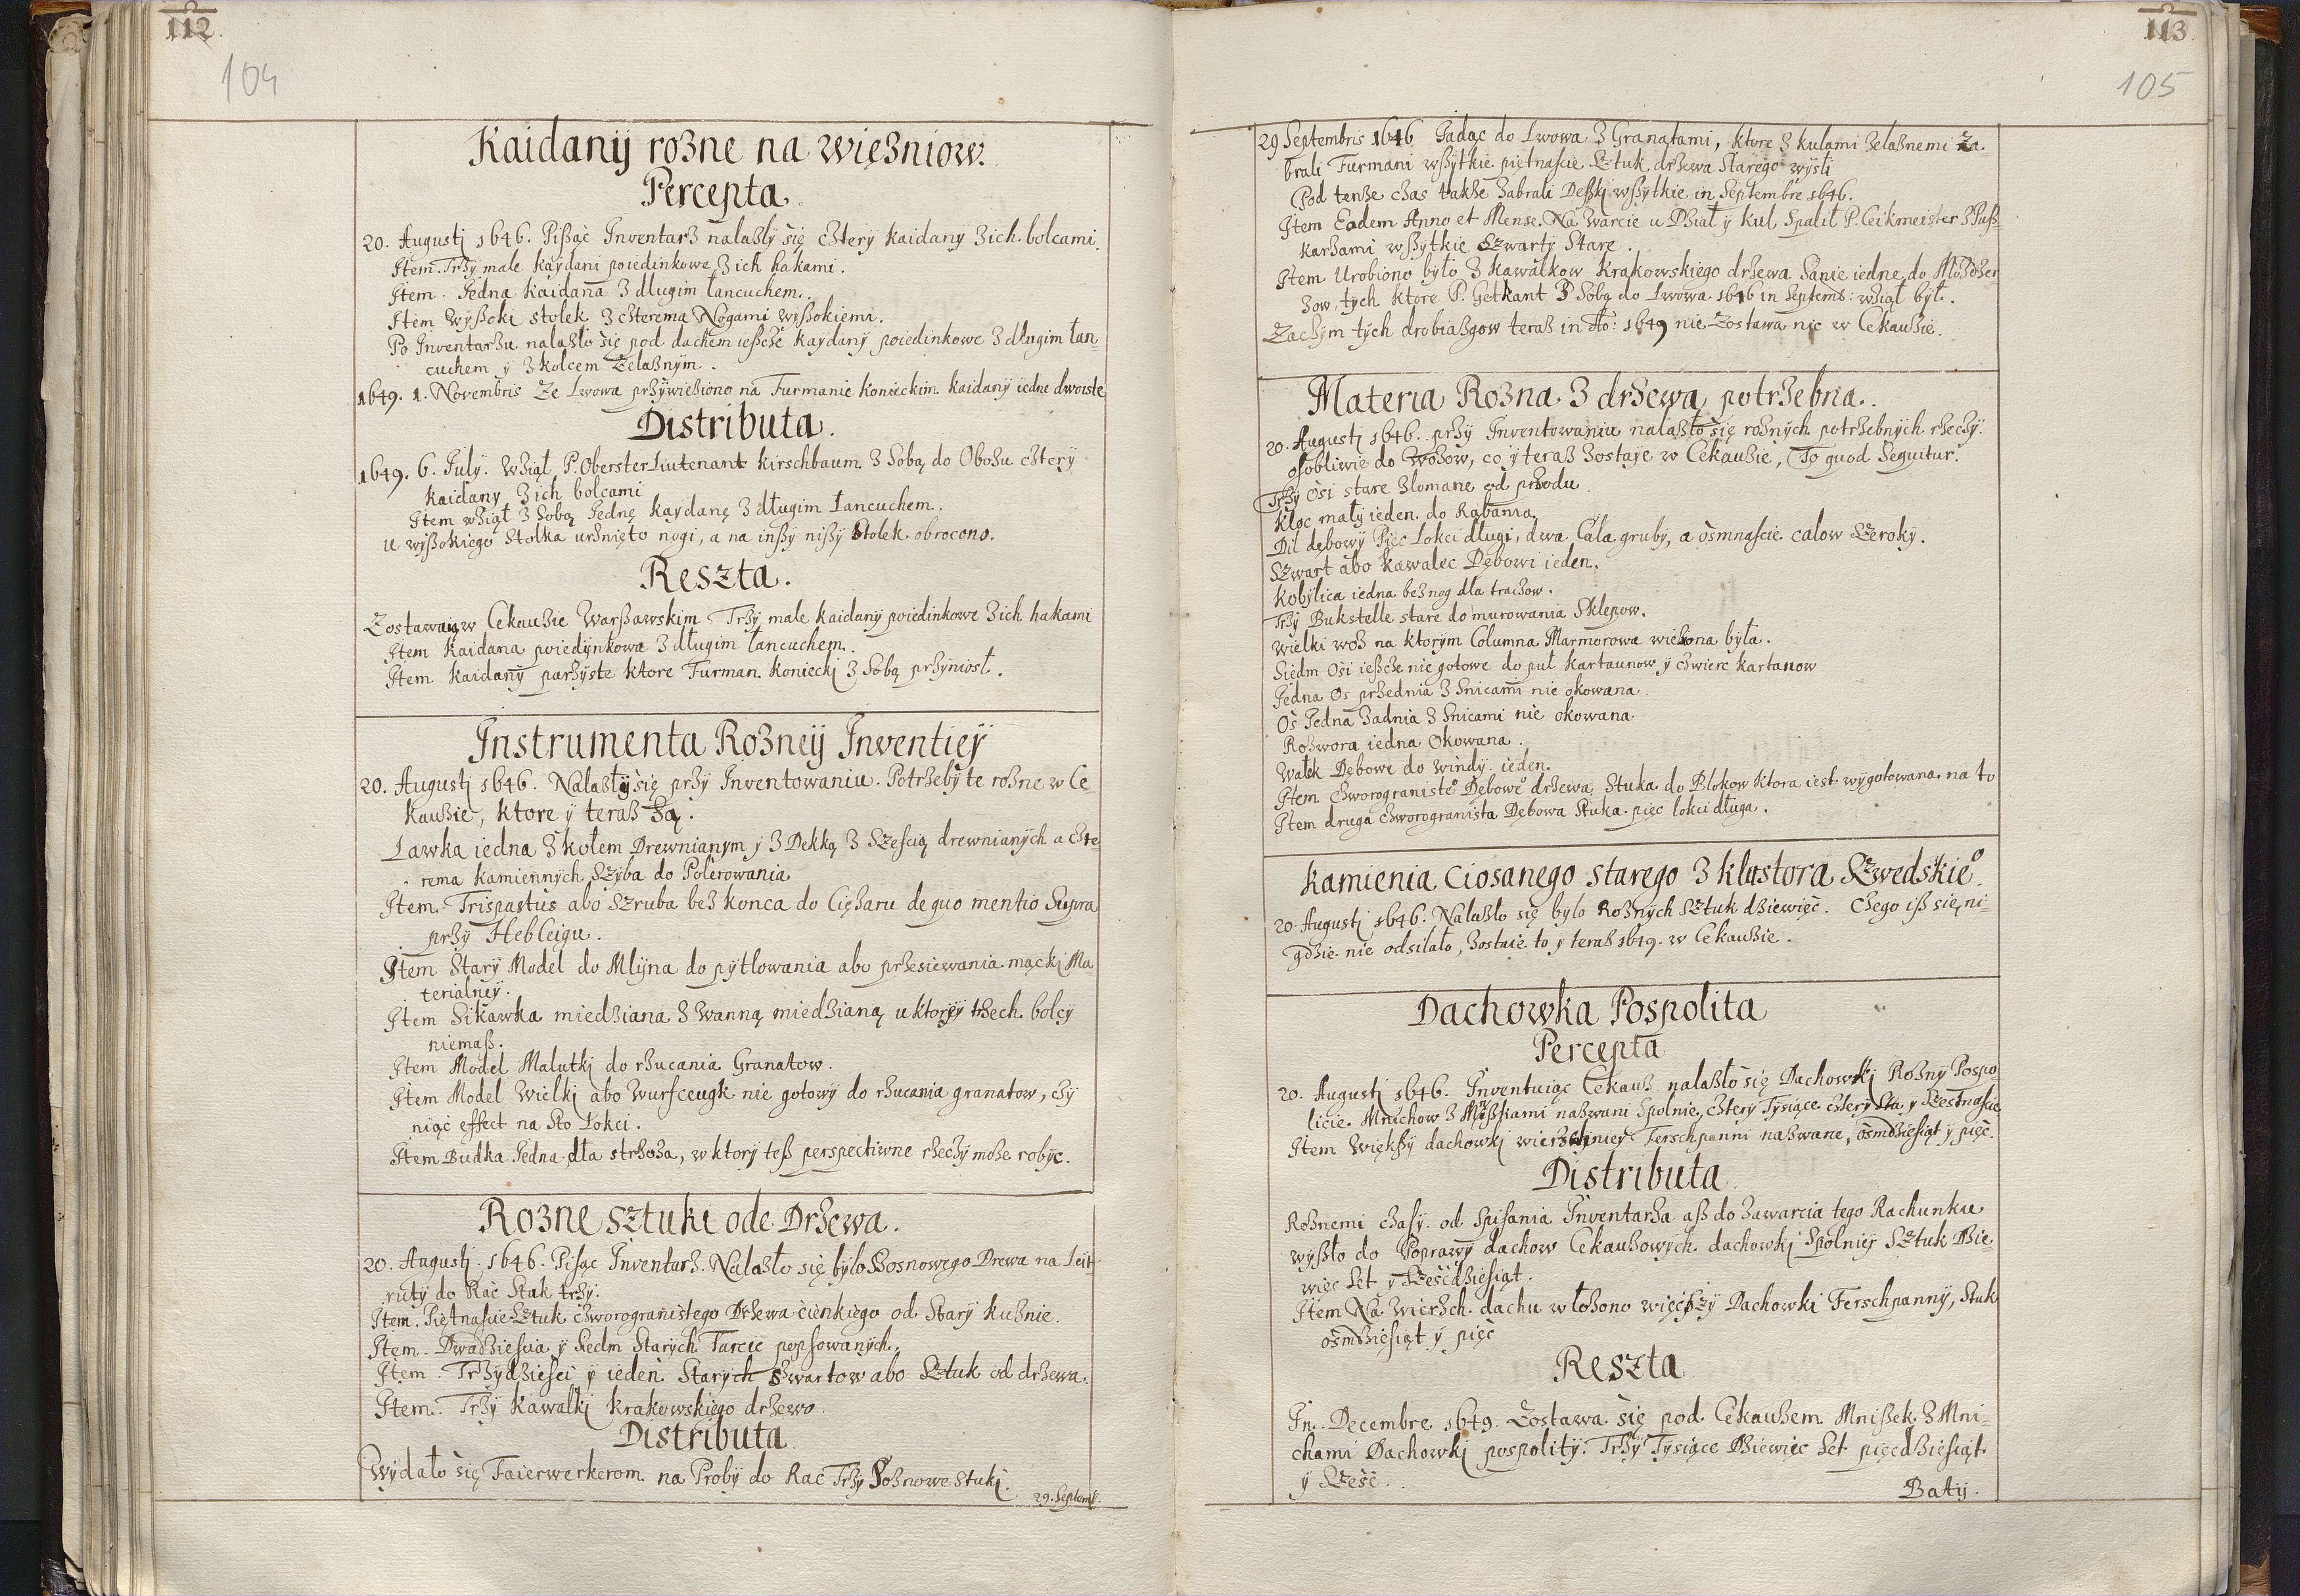 112.
104
Kaidanÿ roʒne na więʒniow.
Percepta.
20. Augustj 1646. Pißąc Inventarʒ nalaʒlÿ się cʒterÿ kaidanÿ ʒ ich bolcami.
Item. Trʒÿ male kaÿdani poiedinkowe ʒ ich hakami.
Item. Jedna kaidana ʒ dlugim łancuchem.
Item wÿßoki stolek ʒ cʒterema Nogami wÿßokiemi.
Po Inventarʒu nalaʒło się pod dachem ießcʒe kaÿdanÿ poiedinkowe ʒ długim łan-
cuchem ÿ ʒ kolcem żelaʒnÿm.
1649. 1. Novembris Ze Lwowa prʒÿwieʒiono na Furmanie konieckim kaidanÿ iedne dwoiste
Distributa.
1649. 6. July. Wʒiął P. Oberster Liutenant Kirschbaum ʒ Sobą do Oboʒu cʒterÿ
kaidany ʒ ich bolcami
Item wʒiął ʒ Sobą Jednę kaydanę ʒ długim Lancuchem.
u wÿßokiego Stolka urʒnięto nogi, a na inßÿ nißÿ Stolek obrocono.
Reszta.
Zostawaią w Cekauʒie Warßawskim Trʒÿ male kaidanÿ poiedinkowe ʒ ich hakami
Item kaidana poiedÿnkowa ʒ długim łancuchem.
Item kaidanÿ parʒÿste ktore Furman konieckj ʒ Sobą prʒÿniosł.
Instrumenta Roʒneÿ Inventieÿ
20. Augustj 1646. Nalaʒłÿ się prʒÿ Inventowaniu. Potrʒebÿ te roʒne w Ce-
kauʒie, ktore ÿ teraʒ Są.
Lawka iedna ʒ kołem Drewnianÿm ÿ ʒ Dekką ʒ Sześcią drewnianÿch a cʒte
rema kamiennÿch Szÿba do Polerowania
Item. Trispastus abo Szruba beʒ konca do Ciężaru de quo mentio Supra
prʒÿ Hebleigu.
Item Starÿ Model do Mlÿna do pÿtlowania abo prʒesiewania mąckj Ma
terialneÿ.
Item Sikawka miedʒiana ʒ wanną miedʒianą u ktoreÿ trʒech bolcÿ
niemaß.
Item Model Malutkj do rʒucania Granatow.
Item Model Wielkj abo Wurfceugk nie gotowÿ do rʒucania granatow, cʒÿ
niąc effect na Sto Lokci.
Item Budka Jedna dla strʒoʒa, w ktorÿ teß perspectiwne rʒecʒÿ może robÿc.
Roʒne sztuki ode Drʒewa.
20. Augustj 1646. Pisąc Inventarʒ. Nalaʒło się bÿło Sosnowego Drewa na Leit-
rutÿ do Rac Stuk trʒÿ.
Item. Piętnaście Sztuk cʒworograniśtego Drʒewa cienkiego od Starÿ kuʒnie.
Item. Dwadʒieścia ÿ Siedm Starÿch Tarcic popsowanÿch.
Item. Trʒÿdʒieści ÿ ieden Starÿch Szwartow abo Sztuk od drʒewa.
Item. Trʒÿ kawałkj krakowskiego drʒewo.
Distributa
Wÿdało się Faierwerkerom na Probÿ do Rac Trʒÿ Soʒnowe Stukj.
29. Septemb.
113.
105
29 Septembris 1646 Jadąc do Lwowa ʒ Granatami, ktore ʒ kulami żelaʒnemi za
brali Furmani wßÿtkie piętnaście Sztuk drʒewa Starego wÿsłi
Pod tenże cʒas także ʒabrali Deßkj wßÿtkie in Septembre 1646.
Item Eodem Anno et Mense. Na Warcie u Dʒiał ÿ kul Spalił P. Ceikmeister ʒ Puß-
karʒami wßÿtkie Szwartÿ Stare.
Item Urobiono bÿło ʒ kawałkow Krakowskiego drʒewa Sanie iedne do Moʒdʒer
ʒow tÿch ktore P. Getkant ʒ Sobą do Lwowa 1646 in Septemb: wʒiął bÿł.
Zacʒÿm tÿch drobiaʒgow teraʒ in Ao: 1649 nie Zostawa nic w Cekauʒie.
Materia Roʒna ʒ drʒewa potrʒebna.
20. Augustj 1646. prʒÿ Inventowaniu nalaʒło się roʒnÿch potrʒebnÿch rʒecʒÿ.
osobliwie do Woʒow, co ÿ teraʒ ʒostaje w Cekauʒie, To quod Sequitur.
Trʒÿ osi stare ʒlomane od prʒodu.
Kloc małÿ ieden do Rąbania.
Dil dębowÿ Pięc Lokci długi, dwa Cala grubÿ, a osmnaście calow Szerokÿ.
Szwart abo kawalec Dębowi ieden.
Kobÿlica iedna beʒ nog dla tracʒow.
Trʒÿ Bukstelle stare do murowania Sklepow.
Wielki woʒ na ktorÿm Columna Marmorowa wieʒiona była.
Siedm Osi ießcʒe nie gotowe do pul kartaunow ÿ cʒwierc kartanow
Jedna Os prʒednia ʒ Snicami nie okowana.
Os Jedna ʒadnia ʒ Snicami nie okowana.
Roʒwora iedna Okowana.
Wałek Dębowe do Windÿ ieden.
Item cʒworograniste° Dębowe° drʒewa Stuka do Blokow ktora iest wÿgotowana na to
Item druga cʒworogranista Dębowa Stuka pięc lokci długa.
Kamienia Ciosanego starego ʒ klastora Szwedskie°.
20. Augustj 1646. Nalaʒło się bylo Roʒnÿch Sztuk dʒiewięc. Cʒego iß się ni-
gdʒie nie odsilało, ʒostaie to ÿ teraʒ 1649. w Cekauʒie.
Dachowka Pospolita
Percepta
20. Augustj 1646. Inventuiąc Cekauʒ nalaʒło się Dachowkj Roʒnÿ Pospo-
licie Mnichow ʒ Mnißkami naʒwani Spolnie, cʒterÿ Tÿsiące cʒterÿ Sta ÿ Szesnaście
Item Więkßÿ dachowkj wierʒchnieÿ Ferschpanni naʒwane, osmdʒiesiąt ÿ pięc.
Distributa
Roʒnemi cʒasÿ od Spisania Inventarʒa aß do ʒawarcia tego Rachunku
wÿßło do Poprawÿ dachow Cekauʒowÿch dachowkj Spolnieÿ Sztuk Dʒie
więc Set ÿ Szescdʒiesiąt.
Item Na Wierʒch dachu włoʒono więcßÿ Dachowki Ferschpannÿ, Stuk
osmdʒiesiąt ÿ pięc
Reszta
In Decembre 1649. Zostawa się pod Cekauʒem Mnißek ʒ Mni-
chami Dachowkj pospolitÿ. Trʒÿ Tÿsiące Dʒiewięc Set pięcdʒiesiąt
ÿ Szesc.
Batÿ.